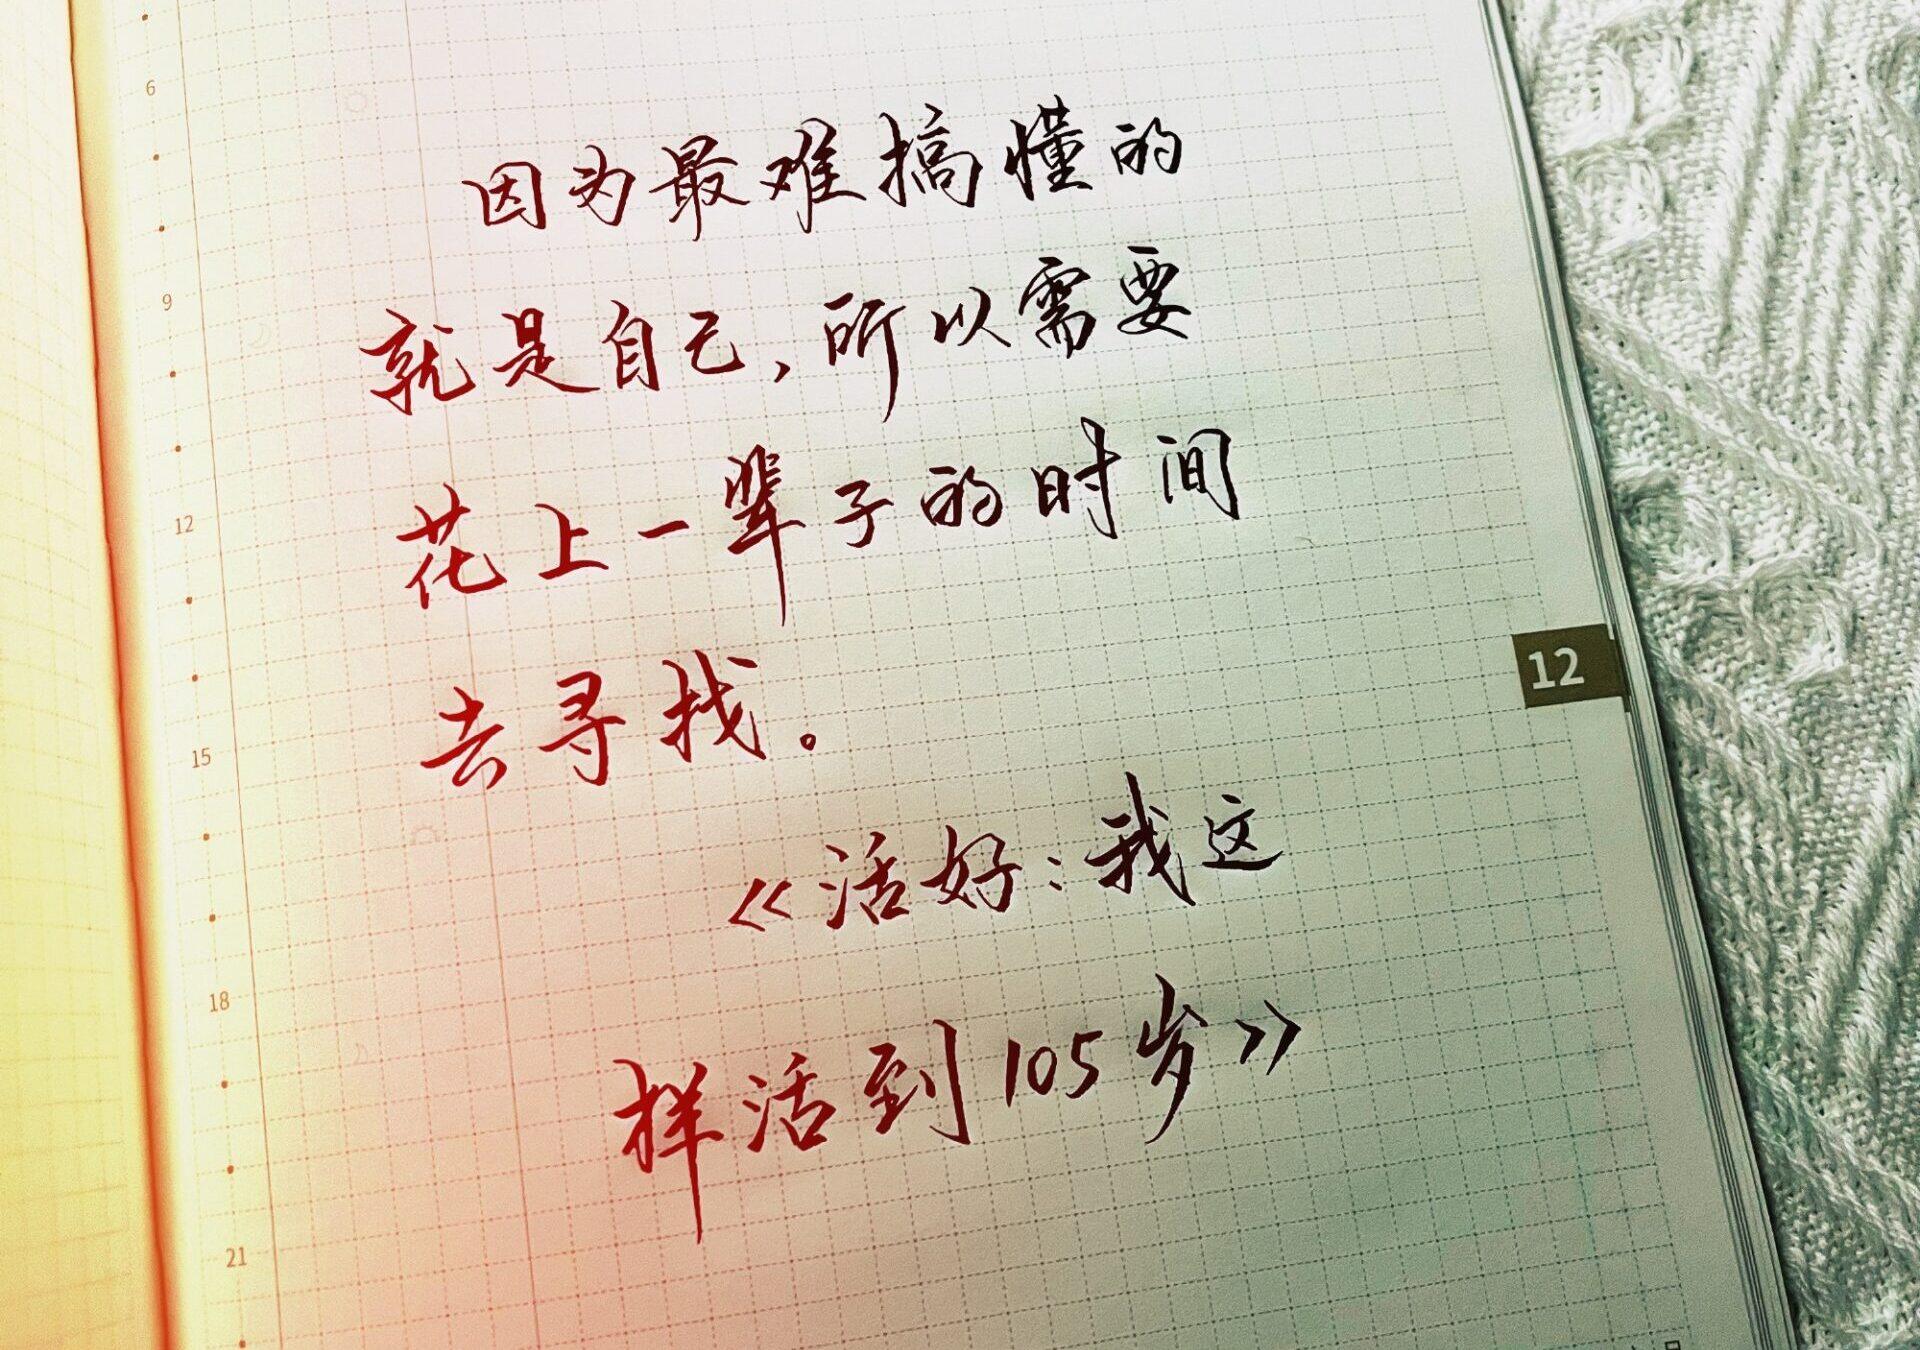 因为最难搞懂的
就是自己，所以需要
花上一辈子的时间
去寻找。
《活好：我这
样活到105岁》
6
9
12
15
18
21
12